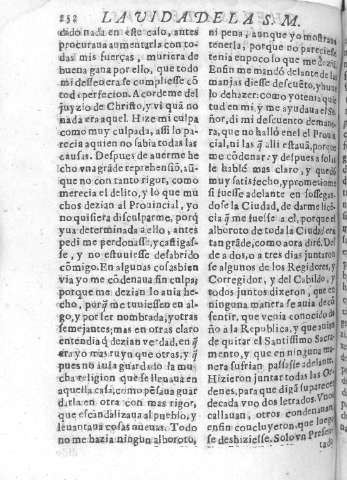 252 LA VIDA DE LA S. M.
dado nada en este caso, antes
procuraua aumentarla con to-
das mis fuerças, muriera de
buena gana por ello, que todo
mi desseo era se cumpliesse cõ
toda perfecion. Acordeme del
juyzio de Christo, y vi quã no
nada era aquel. Hize mi culpa
como muy culpada, assi lo pa-
recia a quien no sabia todas las
causas. Despues de auerme he
cho vna grãde reprehensiõ, aũ-
que no con tanto rigor, como
merecia el delito, y lo que mu
chos dezian al Prouincial, yo
no quisiera disculparme, porq̃
yua determinada a ello, antes
pedi me perdonasse, y castigas-
se, y no estuuiesse desabrido
cõmigo. En algunas cosas bien
via yo me cõdenauã sin culpa,
porque me dezian lo auia he-
cho, porq̃ me tuuiessen en al-
go, y por ser nombrada, y otras
semejantes; mas en otras claro
entendia q̃ dezian verdad, en q̃
era yo mas ruyn que otras, y q̃
pues no auia guardado la mu
cha religion que se lleuaua en
aquella casa, como pẽsaua guar
darla en otra con mas rigor,
que escandalizaua al pueblo, y
leuantaua cosas nueuas. Todo
no me hazia ningun alboroto,
ni pena, aunque yo mostraua
tenerla, porque no pareciesse
tenia en poco lo que me dezia.
En fin me mandò delante de las
monjas diesse descuẽto, y huue
lo de hazer: como yo tenia quie
tud en mi, y me ayudaua el Se-
ñor, di mi descuento de mane-
ra, que no hallò en el Prouin
cial, ni las q̃ alli estauã, porque
me cõdenar: y despues a solas
le hablè mas claro, y quedò
muy satisfecho, y prometiome
si fuesse adelante en sossegan
dose la Ciudad, de darme licẽ-
cia q̃ me fuesse a el, porque el
alboroto de toda la Ciudad era
tan grãde, como aora dirè. Des
de a dos, o a tres dias juntaron
se algunos de los Regidores, y
Corregidor, y del Cabildo, y
todos juntos dixeron, que en
ninguna manera se auia de cõ
sentir, que venia conocido da
ño a la Republica, y que auian
de quitar el Santissimo Sacra-
mento, y que en ninguna ma-
nera sufrian passasse adelante.
Hizieron juntar todas las Or-
denes, para que digã su parecer,
de cada vno dos letrados. Vnos
callauan, otros condenauan,
en fin concluyeron, que luego
se deshiziesse. Solo vn Presen-
tado